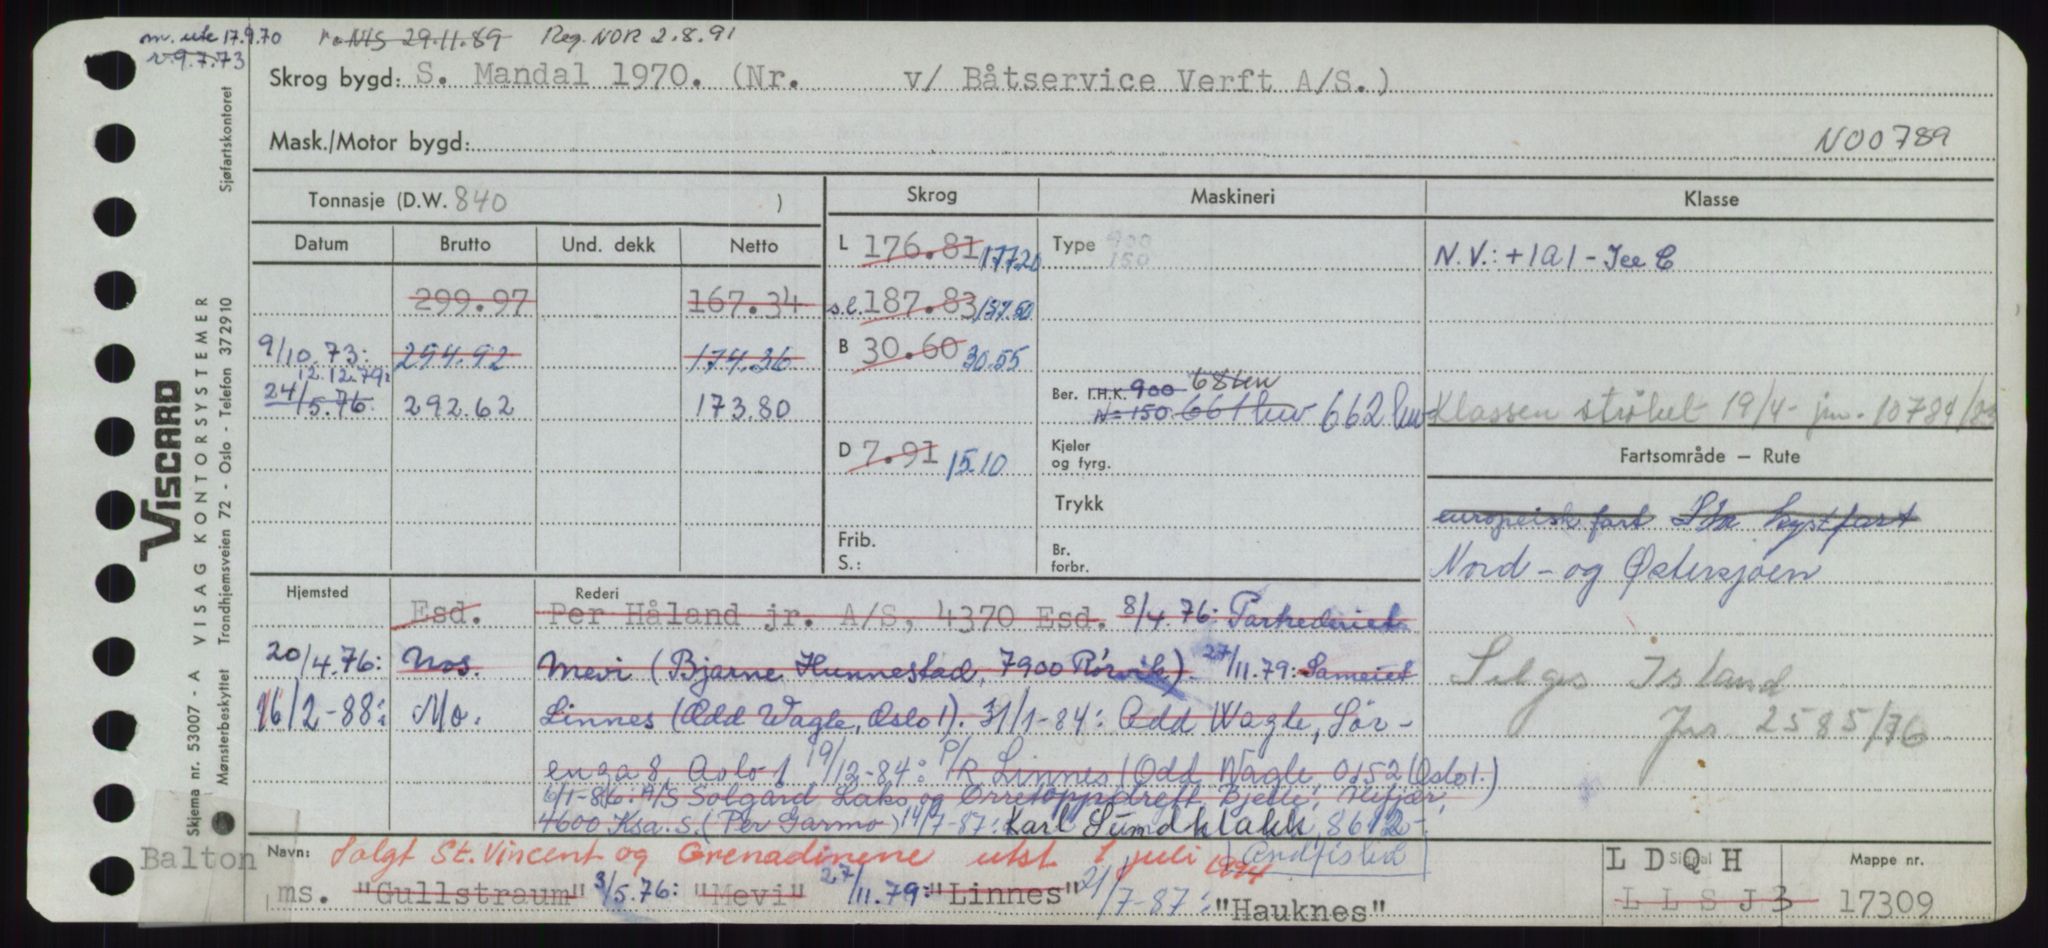 m. utk 17.9.70 r. NIS 29.11.89 Reg. NOR 2.8.91
r. 9.7.73
Skrog bygd: S. Mandal 1970. (Nr. v/ Båtservice Verft A/S.)
Mask./Motor bygd:
N00789
Tonnasje (D.W. 840 )
Skrog Maskineri Klasse
Datum Brutto Und. dekk Netto
L 176.81 177.20 Type 900
150
N.V.: +1A1 - Ice C
299.97 167.34 s.l. 187.83 187.50
9/10.73: 294.92 174.36 B 30.60 30.55
12.12.79:
24/5.76. 292.62 173.80
Ber. I.H.K. 900
N=150. 661 kw 662 kw
Klassen strøket 19/4- jnr. 10784/83
D 7.91 15.10 Kjeler og fyrg.
Fartsområde — Rute
Trykk
europeisk fart kystfart
Frib.
S.:
Br. forbr.
Nord- og Østersjøen
Hjemsted Rederi
Esd. Per Håland jr. A/S, 4370 Esd. 8/4.76: Partrederiet
20/4.76: Nos. Mevi (Bjarne Hunnestad, 7900 Rørvik). 27/11.79: Sameiet
Selges Island
16/2-88: Mo. Linnes (Odd Wagle, Oslo 1). 31/1-84: Odd Wagle, Sør-
Jnr 2585/76
enga 8, Oslo 1 19/12-84: P/R Linnes (Odd Wagle 0152 Oslo 1.)
6/1-86: A/S Solgård Laks og Ørretoppdrett,
4600 Ksa. S. (Per Garmo) 14/7-87: Karl Sundklakk, 8612-
Andfiskå
Balton
Navn: Solgt St. Vincent og Grenadinene utst 1 juli 1994
ms. "Gullstraum" 3/5.76: "Mevi" 27/11.79: "Linnes" 21/7-87: "Hauknes"
Signal
L D Q H
L L S J 3
Mappe nr.
17309
Viscard
VISAG KONTORSYSTEMER
Skjema nr. 53007 - A
Mønsterbeskyttet
Trondhjemsveien 72 - Oslo - Telefon 372910
Sjøfartskontoret